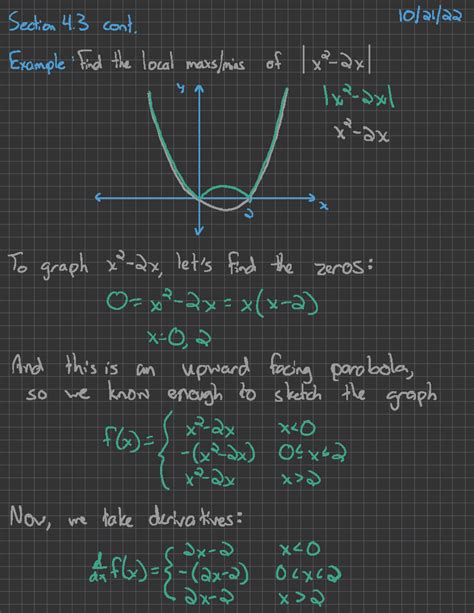 Section 4.3 cont. 10/21/22
Example: Find the local maxs/mins of |x²-2x|
y |x²-2x|
x²-2x
2 x
To graph x²-2x, let's find the zeros:
0=x²-2x=x(x-2)
x=0,2
And this is an upward facing parabola,
so we know enough to sketch the graph
f(x)={ x²-2x x<0
-(x²-2x) 0≤x≤2
x²-2x x>2
Now, we take derivatives:
d/dx f(x)={ 2x-2 x<0
-(2x-2) 0<x<2
2x-2 x>2